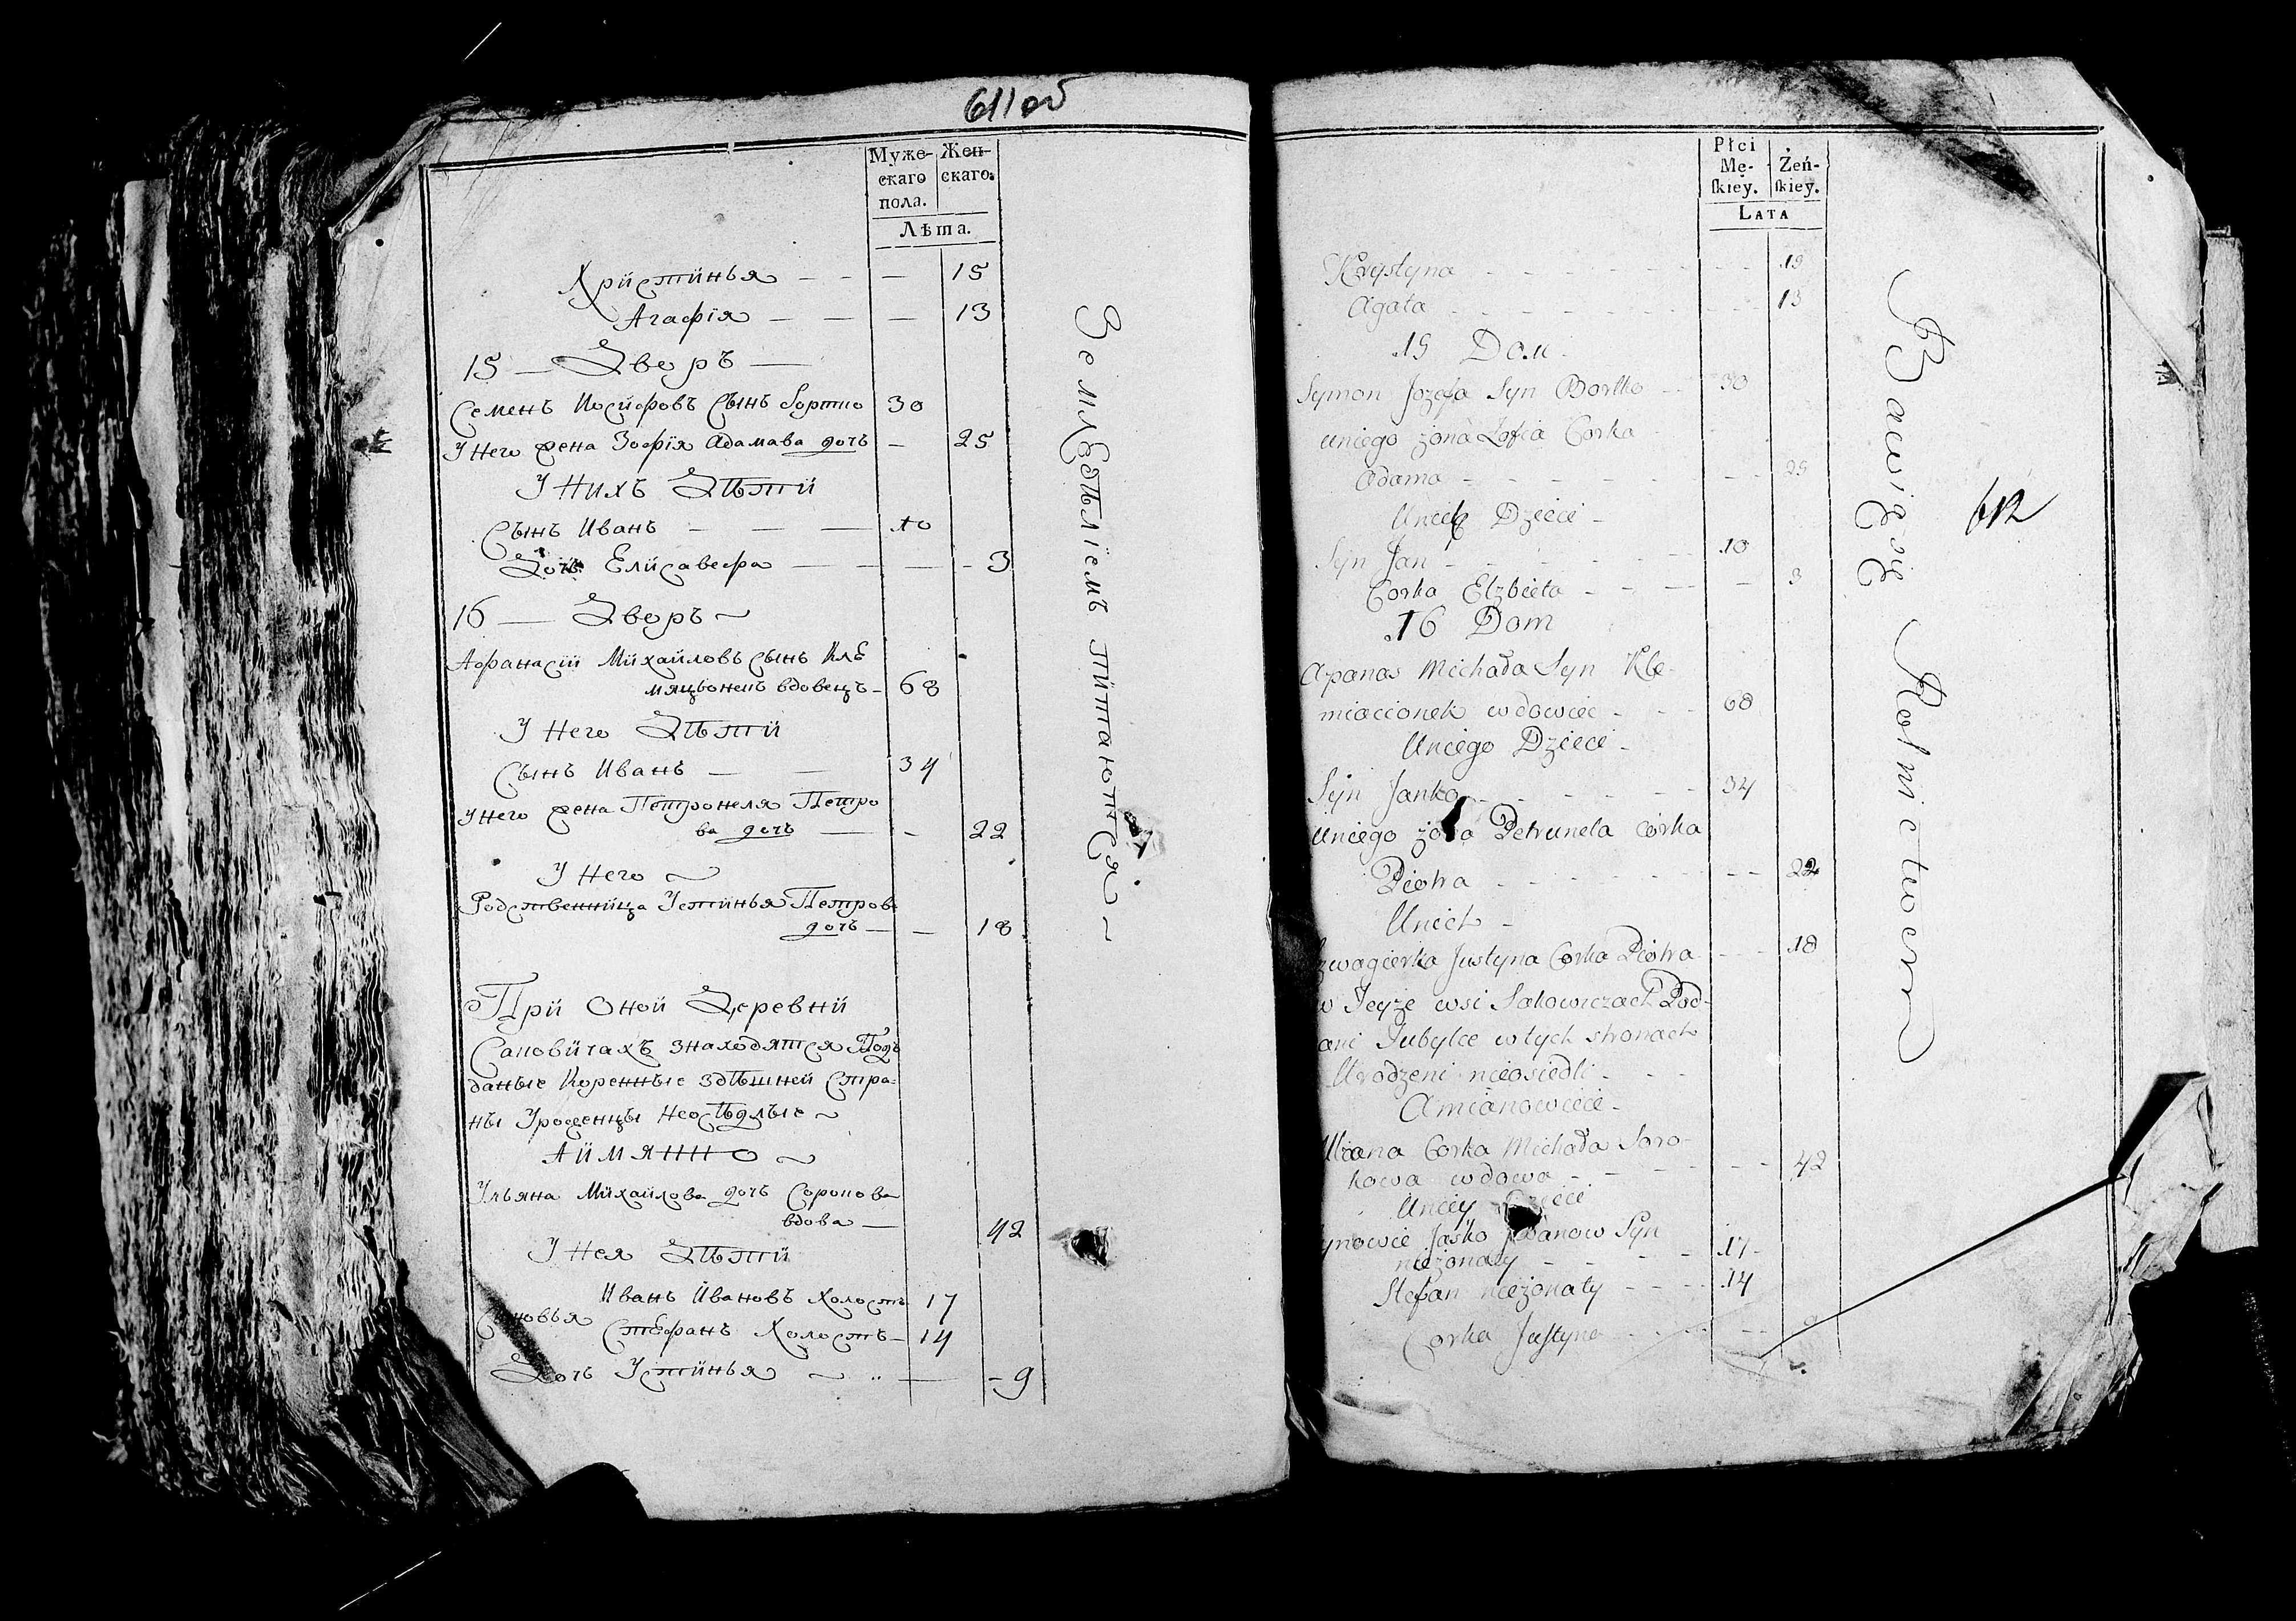 611 об
Муже-
скаго
пола.
Жен-
скаго.
Лѣта.
Христинья — — — 15
Агафія — — — 13
15 — Дворъ —
Семенъ Иосифовъ Сынъ Бортко 30
У Него жена Зофія Адамава дочь — 25
У Нихъ Дѣти
Сынъ Иванъ — — — 10
Дочь Елисавефа — — — 3
16 — Дворъ ~
Афанасій Михайловъ Сынъ Кле
мяціонекъ вдовецъ — 68
У Него Дѣти
Сынъ Иванъ — — 34
У Него жена Петронеля Петро
ва дочь — — 22
У Него ~
Родственница Устинья Петрова
дочь — — 18
При Оной Деревни
Саковичахъ знаходятся Под
даные Коренные здѣшней Стра-
ны Уроженцы Неосѣдлые ~
Аймянно ~
Ульяна Михайлова дочь Сорокова
вдова — 42
У Нея Дѣти
Сыновья Иванъ Ивановъ Холостъ 17
Стефанъ Холостъ — 14
Дочь Устинья ~ — - 9
Земледѣліемъ питаются ~
Płci
Mę-
ſkiey.
Żeń-
ſkiey.
Lata
Krystyna - - - 15
Agata - - - 13
15 Dom
Symon Jozefa Syn Bortko - 30
Uniego żona Zofia Corka
Adama - - - 25
Unich Dzieci -
Syn Jan - - - 10
Corka Elzbieta - - - 3
16 Dom
Apanas Michała Syn Kle-
miacionek wdowiec - - 68
Uniego Dzieci -
Syn Janko - - - 34
Uniego żona Petrunela corka
Piotra - - - 22
Unich -
Szwagierka Justyna Corka Piotra - - 18
w Teyże wsi Sakowiczach Pod-
ani Tubylce w tych stronach
Urodzeni nieosiedli - -
Amianowicie -
Ulzana Corka Michała Soro-
kowa wdowa - - - 42
Uniey Dzieci
ynowie Jaśko Iwanow Syn
nieżonaty - - - 17
Stefan nieżonaty - - - 14
Corka Justyna - - - 9
Bawią się Rolnictwem
612